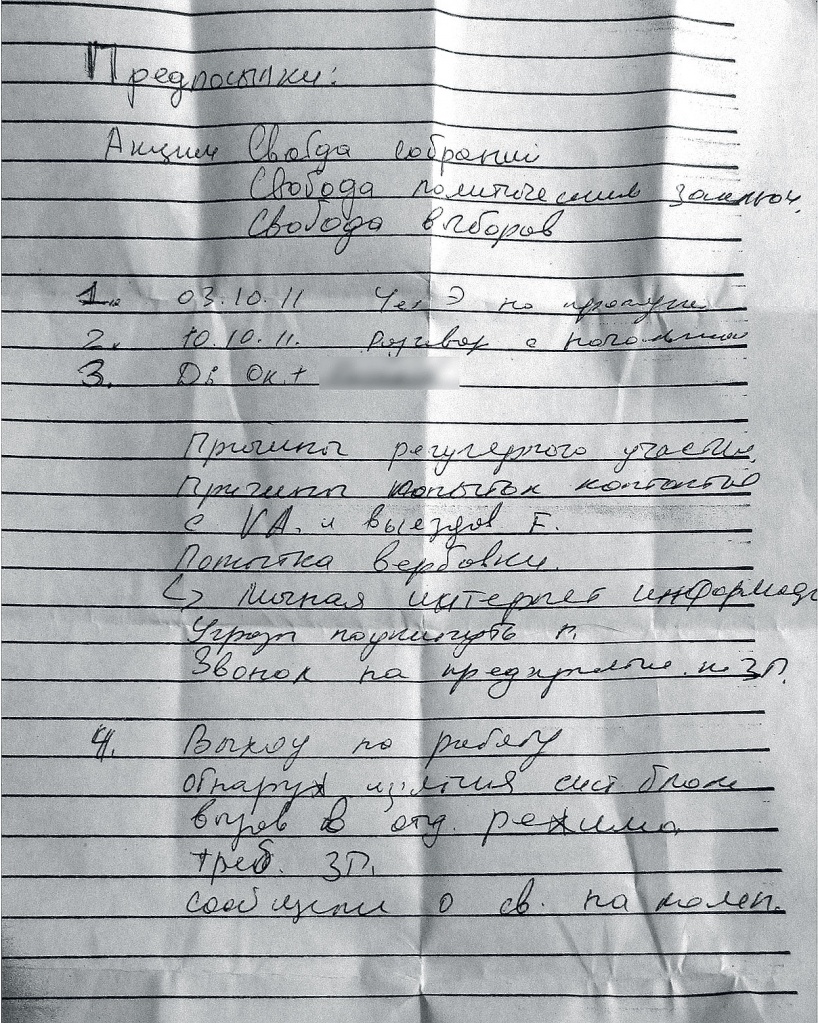 Предпосылки:
Акции Свобда собраний
Свобода политических заключ.
Свобода выборов
1. 03.10.11 Чел Э на
2. 10.10.11. Разговор с начальник
3. Дв Ок.+
Причины регулярного участия
Причины попыток контактов
с VA. и выездов F.
Попытка вербовки.
Личная интернет информаци
Угрозы п.
Звонок на предприятие. и ЗП.
4. Выхжу на работу
обнаруж изъятия сист блок
вызов в отд. режима
треб. ЗП.
сообщили о св. на